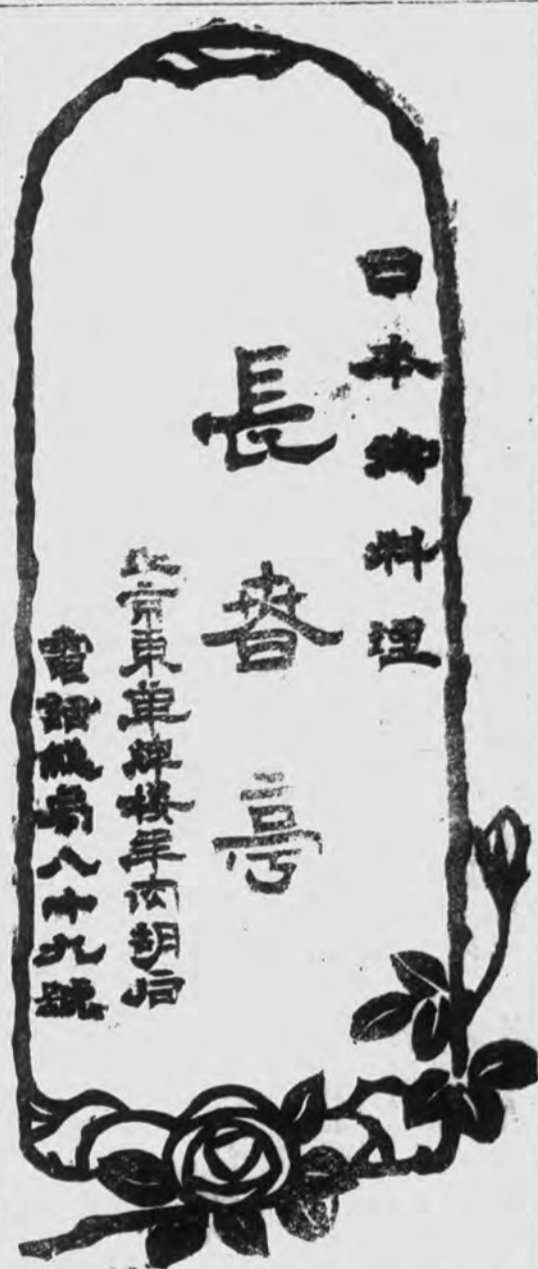 日本御料理
長春亭
北京東単牌楼羊肉胡同
電話総局八十九號